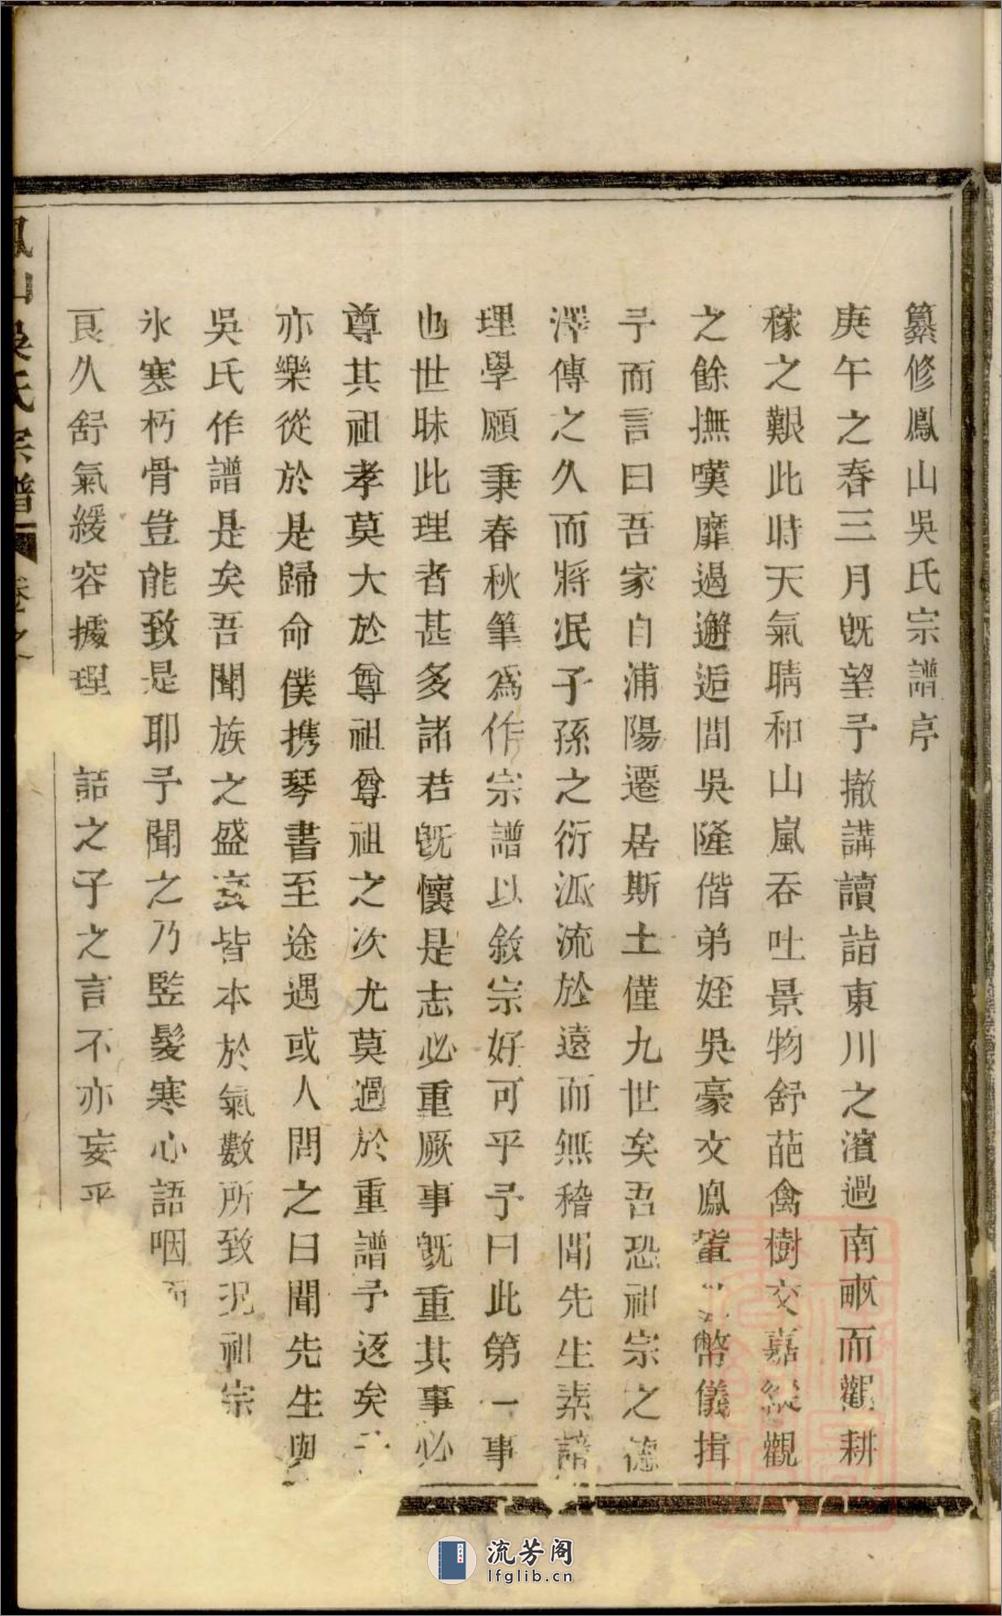 纂修鳳山吳氏宗譜序
庚午之春三月旣望予撤講讀詣東川之濱過南畝而觀耕
稼之艱此時天氣晴和山嵐吞吐景物舒葩禽樹交嘉縱觀
之餘撫嘆靡過邂逅間吳隆偕弟姪吳豪文鳳幣儀揖
予而言曰吾家自浦陽遷居斯土僅九世矣吾恐祖宗之德
澤傳之久而將泯子孫之衍派流於遠而無稽聞先生素諳
理學願秉春秋筆爲作宗譜以敘宗好可乎予曰此第一事
也世昧此理者甚多諸若旣懷是志必重厥事旣重其事必
尊其祖孝莫大於尊祖尊祖之次尤莫過於重譜予返矣
亦樂從於是歸命僕携琴書至途遇或人問之曰聞先生與
吳氏作譜是矣吾聞族之盛衰皆本於氣數所致况祖宗
氷寒朽骨豈能致是耶予聞之乃監髮寒心語咽而
良久舒氣緩容據理詰之子之言不亦妄乎
鳳山吳氏宗譜 卷之
流芳阁
lfglib.cn